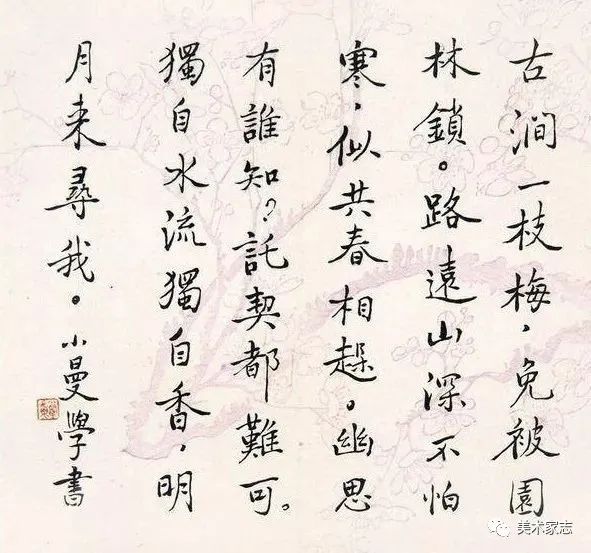 古澗一枝梅，免被園
林鎖。路遠山深不怕
寒，似共春相趓。幽思
有誰知？託契都難可。
獨自水流獨自香，明
月来尋我。小曼學書
美术家志